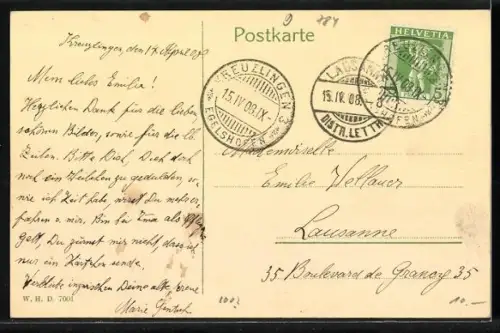 9 784
Postkarte
Kreuzlingen, den 14. April 08
Mein liebes Emilie!
Herzlichen Dank für die lieben
schönen Bilder, sowie für die lb.
Zeilen. Bitte Dich, Dich doch
noch ein Weilchen zu gedulden, so-
wie ich Zeit habe, wirst Du mehr er-
fahren v. mir. Bin bei Ema als
Gelt, Du zürnst mir nicht, dass ich
nur ein Kärtchen sende.
Verbleibe inzwischen Deine alte, treue
Marie
W. H. D. 7001
KREUZLINGEN 3
15.IV.08.IX-
EGELSHOFEN
LAUSANNE
15.IV.08.
DISTR. LETTR.
KREUZLINGEN
EGELSHOFEN
HELVETIA
5
Mademoiselle
Emilie Vellauer
Lausanne
35 Boulevard de Grancy 35
10.-